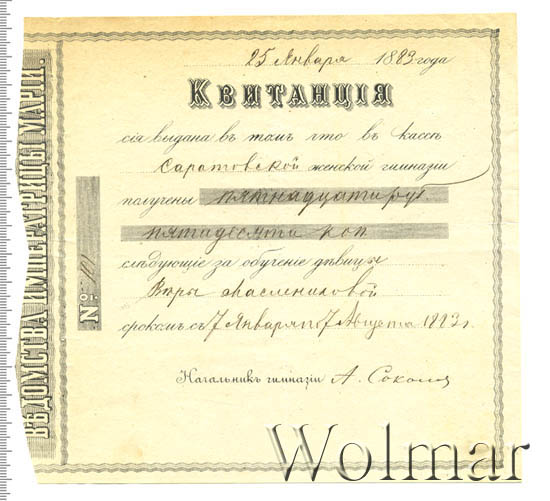 ВѢДОМСТВА ИМПЕРАТРИЦЫ МАРІИ.
25 Января 1883 года
Квитанція
сія выдана въ томъ что въ кассѣ
Саратовской женской гимназіи
получены пятнадцать руб.
пятьдесятъ коп
слѣдующіе за обученіе дѣвицы
Вѣры Маслениковой
срокомъ съ 7 Января по 7 Августа 1883 г.
№ 101
Начальникъ гимназіи А. Соколов
Wolmar